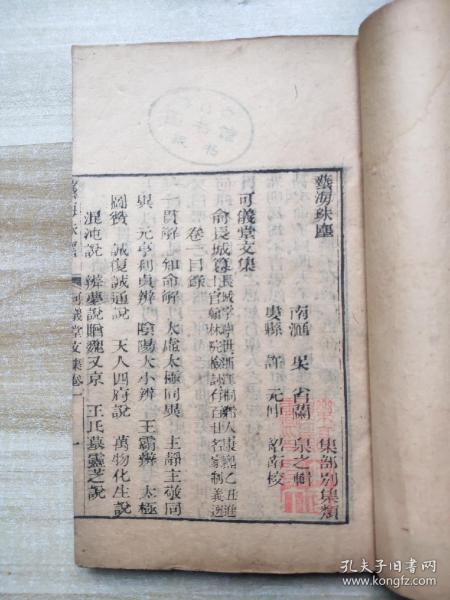 藝海珠塵
集部別集類
南滙 吳省蘭 泉之輯
虞縣 許元仲 詔南校
可儀堂文集
俞長城
卷一目錄
一貫解 知命解 太虛太極同異 主靜主敬同
異 元亨利貞辨 陰陽大小辨 王霸辨 太極
圖贊 誠復誠通說 天人四府說 萬物化生說
混沌說 辨夢說贈魏又京 王氏墓靈芝說
藝海珠塵
可儀堂文集卷一
一
孔夫子旧书网
www.kongfz.com